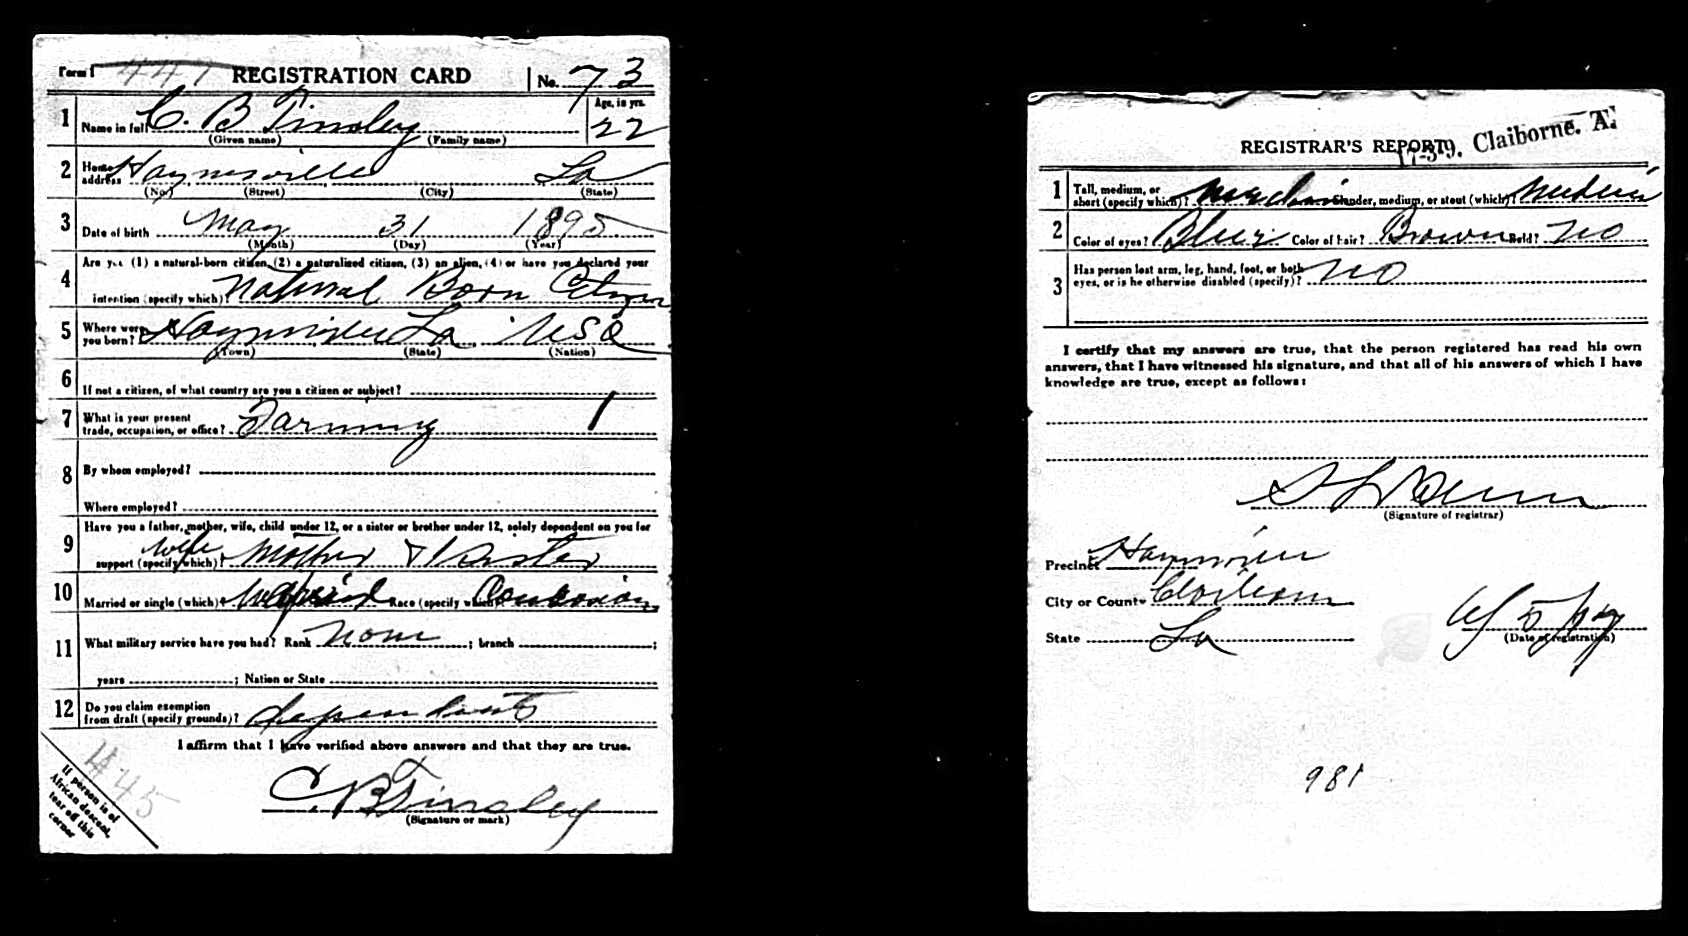 Form 1 447 REGISTRATION CARD No. 73
1 Name in full C. B Tinsley Age, in yrs. 22
(Given name) (Family name)
2 Home address Haynesville La
(No.) (Street) (City) (State)
3 Date of birth May 31 1895
(Month) (Day) (Year)
4 Are you (1) a natural-born citizen, (2) a naturalized citizen, (3) an alien, (4) or have you declared your
intention (specify which)? Natural Born Citizen
5 Where were you born? Haynesville La USA
(Town) (State) (Nation)
6 If not a citizen, of what country are you a citizen or subject?
7 What is your present
trade, occupation, or office? Farming 1
8 By whom employed?
Where employed?
9 Have you a father, mother, wife, child under 12, or a sister or brother under 12, solely dependent on you for
support (specify which)? wife Mother & 1 sister
10 Married or single (which)? Race (specify which)? Caucasian
11 What military service have you had? Rank None ; branch ;
years ; Nation or State
12 Do you claim exemption
from draft (specify grounds)? dependents
I affirm that I have verified above answers and that they are true.
C. B Tinsley
(Signature or mark)
445
If person is of
African descent,
tear off this
corner
REGISTRAR'S REPORT 17-3-9. Claiborne. A.
1 Tall, medium, or
short (specify which)? Slender, medium, or stout (which)? Medium
2 Color of eyes? Blue Color of hair? Brown Bald? No
3 Has person lost arm, leg, hand, foot, or both
eyes, or is he otherwise disabled (specify)? No
I certify that my answers are true, that the person registered has read his own
answers, that I have witnessed his signature, and that all of his answers of which I have
knowledge are true, except as follows:
(Signature of registrar)
Precinct Haynesville
City or County Claiborne
State La
6/5/17
(Date of registration)
981